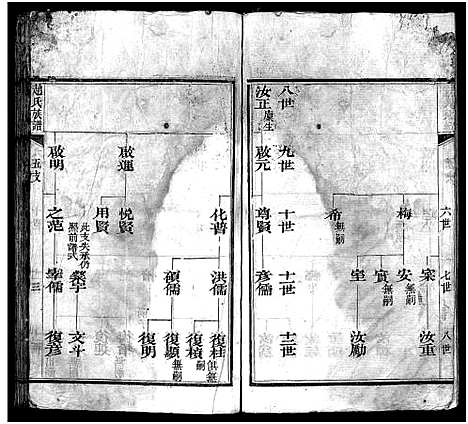 六世
七世
八世
梅
希 無嗣
寀 安 無嗣
實 無嗣
室
汝重
汝勵
八世 九世 十世 十一世 十二世
汝正 廪生
啟元 尊賢 彦儒
化普 洪儒 復桂 俱無嗣
復楨
碩儒 復顯 無嗣
復明
啟運 悦賢
用賢
此支失承仍照前譜式
文斗
啟明 之范 儒 復彦
趙氏族譜
五支
十三